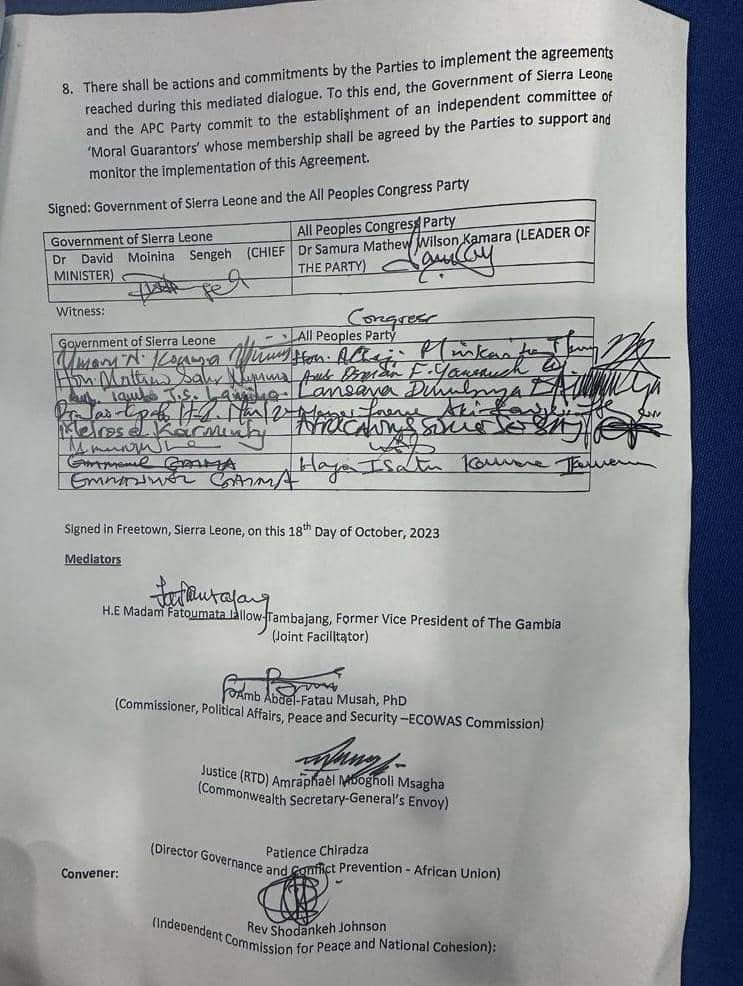 8. There shall be actions and commitments by the Parties to implement the agreements
reached during this mediated dialogue. To this end, the Government of Sierra Leone
and the APC Party commit to the establishment of an independent committee of
‘Moral Guarantors’ whose membership shall be agreed by the Parties to support and
monitor the implementation of this Agreement.
Signed: Government of Sierra Leone and the All Peoples Congress Party
Government of Sierra Leone All Peoples Congress Party
Dr David Moinina Sengeh (CHIEF Dr Samura Mathew Wilson Kamara (LEADER OF
MINISTER) THE PARTY)
Witness:
Congress
Government of Sierra Leone All Peoples Party
Hon.
Hon. Amb Osman F. Yansaneh
Lansana Dumbuya
Emmanuel GAIMA Haja Isatu Kamara
EMMANUEL GAIMA
Signed in Freetown, Sierra Leone, on this 18th Day of October, 2023
Mediators
H.E Madam Fatoumata Jallow-Tambajang, Former Vice President of The Gambia
(Joint Facilitator)
Amb Abdel-Fatau Musah, PhD
(Commissioner, Political Affairs, Peace and Security –ECOWAS Commission)
Justice (RTD) Amraphael Mbogholi Msagha
(Commonwealth Secretary-General’s Envoy)
Patience Chiradza
(Director Governance and Conflict Prevention - African Union)
Convener:
Rev Shodankeh Johnson
(Independent Commission for Peace and National Cohesion):